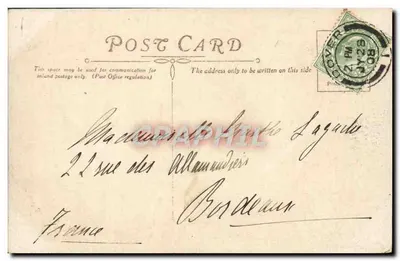 POST CARD
This space may be used for communication for
inland postage only. (Post Office regulation)
The address only to be written on this side
DOVER
PM
JY 28
08
CPAPHIL
Mademoiselle Lagache
22 rue des Allamandiers
Bordeaux
France